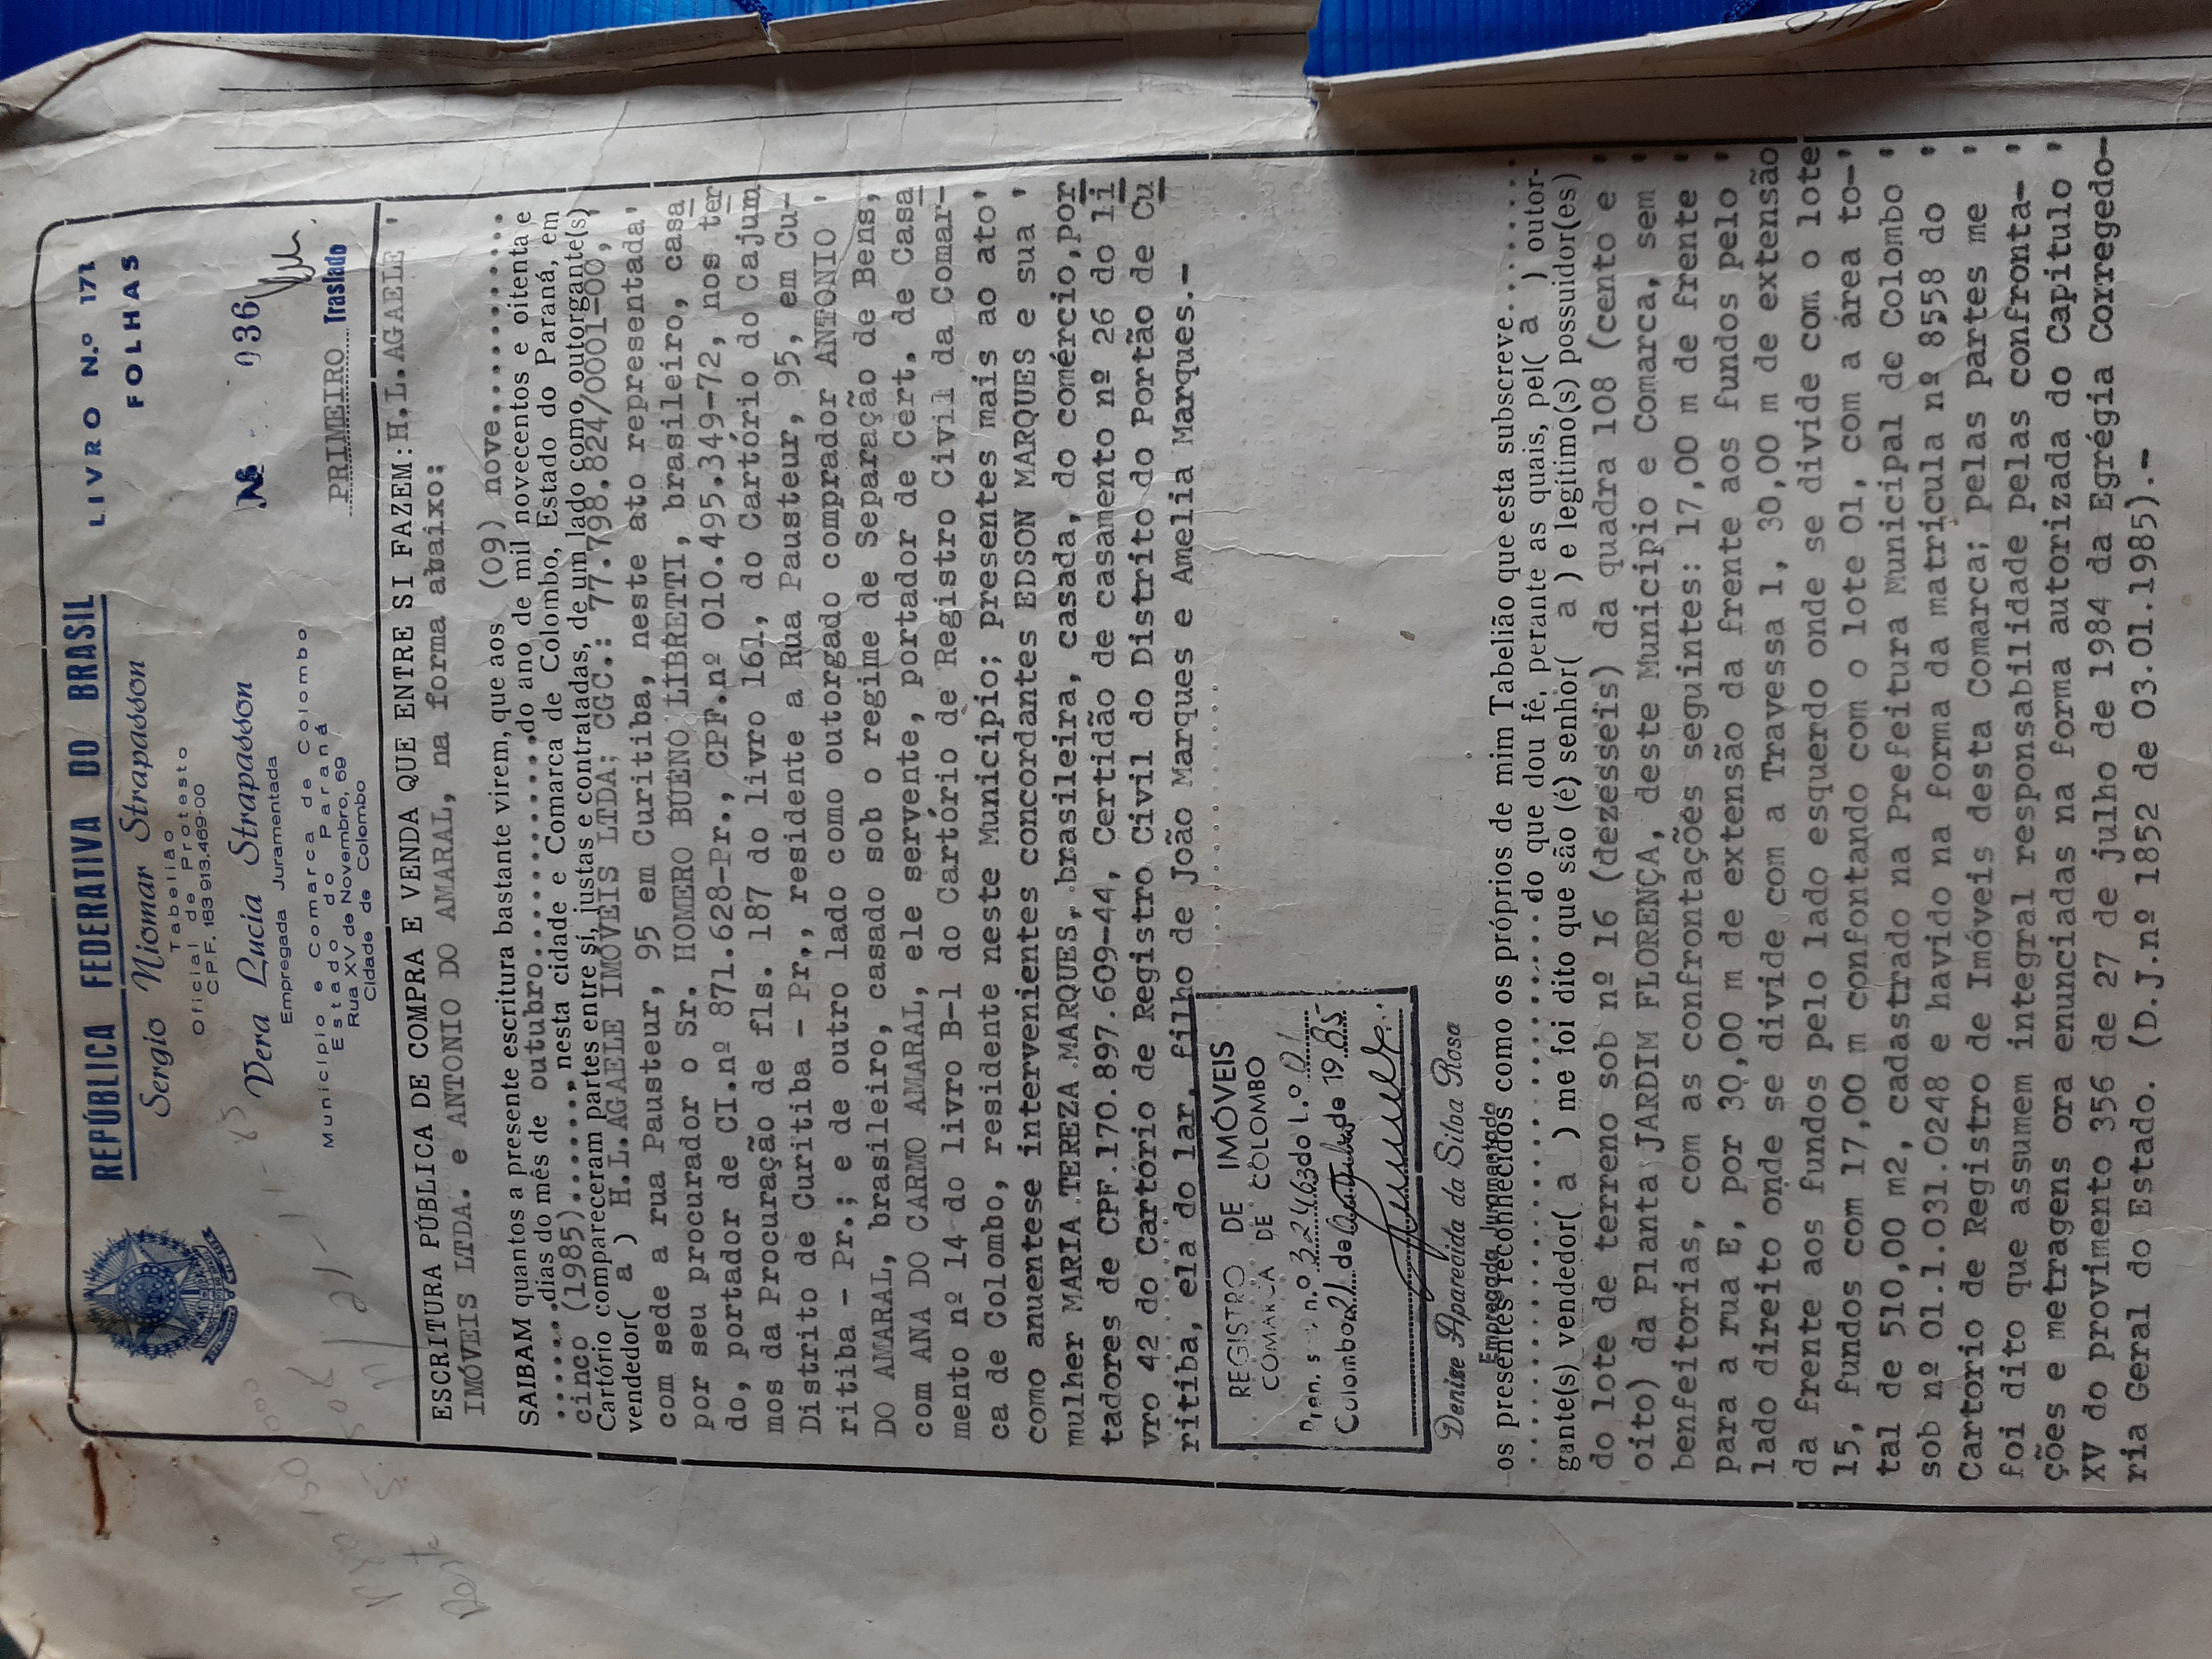 REPÚBLICA FEDERATIVA DO BRASIL
LIVRO N.º 171
FOLHAS
Sergio Niomar Strapasson
Tabelião
Oficial de Protesto
C.P.F. 163 913.469-00
Vera Lucia Strapasson
Empregada Juramentada
Município e Comarca de Colombo
Estado do Paraná
Rua XV de Novembro, 69
Cidade de Colombo
Nº 036
PRIMEIRO Traslado
ESCRITURA PÚBLICA DE COMPRA E VENDA QUE ENTRE SI FAZEM: H.L.AGAELE '
IMÓVEIS LTDA. e ANTONIO DO AMARAL, na forma abaixo:
SAIBAM quantos a presente escritura bastante virem, que aos (09) nove..........
......dias do mês de outubro..............do ano de mil novecentos e oitenta e
cinco (1985)........, nesta cidade e Comarca de Colombo, Estado do Paraná, em
Cartório compareceram partes entre si, justas e contratadas, de um lado como outorgante(s)
vendedor( a ) H.L.AGAELE IMÓVEIS LTDA; CGC.: 77.798.824/0001-00, '
com sede a rua Pausteur, 95 em Curitiba, neste ato representada'
por seu procurador o Sr. HOMERO BUENO LIBRETTI, brasileiro, casa
do, portador de CI.nº 871.628-Pr., CPF.nº 010.495.349-72, nos ter
mos da Procuração de fls. 187 do livro 161, do Cartório do Cajum
Distrito de Curitiba - Pr., residente a Rua Pausteur, 95, em Cu-
ritiba - Pr.; e de outro lado como outorgado comprador ANTONIO '
DO AMARAL, brasileiro, casado sob o regime de Separação de Bens,
com ANA DO CARMO AMARAL, ele servente, portador de Cert. de Casa
mento nº 14 do livro B-1 do Cartório de Registro Civil da Comar-
ca de Colombo, residente neste Municipio; presentes mais ao ato'
como anuentese intervenientes concordantes EDSON MARQUES e sua '
mulher MARIA TEREZA MARQUES, brasileira, casada, do comércio, por
tadores de CPF.170.897.609-44, Certidão de casamento nº 26 do li
vro 42 do Cartório de Registro Civil do Distrito do Portão de Cu
ritiba, ela do lar, filho de João Marques e Amelia Marques.-
REGISTRO DE IMÓVEIS
COMARCA DE COLOMBO
Pren. s n.º 3.24463 do L.º 01
Colombo 21 de Outubro de 1985
Denise Aparecida da Silva Rosa
Empregada Juramentada
os presentes reconhecidos como os próprios de mim Tabelião que esta subscreve.........
................ do que dou fé, perante as quais, pel( a ) outor-
gante(s) vendedor( a ) me foi dito que são (é) senhor( a ) e legítimo(s) possuidor(es)
do lote de terreno sob nº 16 (dezesseis) da quadra 108 (cento e '
oito) da Planta JARDIM FLORENÇA, deste Municipio e Comarca, sem '
benfeitorias, com as confrontações seguintes: 17,00 m de frente '
para a rua E, por 30,00 m de extensão da frente aos fundos pelo '
lado direito onde se divide com a Travessa 1, 30,00 m de extensão
da frente aos fundos pelo lado esquerdo onde se divide com o lote
15, fundos com 17,00 m confontando com o lote 01, com a área to-'
tal de 510,00 m2, cadastrado na Prefeitura Municipal de Colombo '
sob nº 01.1.031.0248 e havido na forma da matricula nº 8558 do '
Cartorio de Registro de Imóveis desta Comarca; pelas partes me '
foi dito que assumem integral responsabilidade pelas confronta-'
ções e metragens ora enunciadas na forma autorizada do Capitulo '
XV do provimento 356 de 27 de julho de 1984 da Egrégia Corregedo-
ria Geral do Estado. (D.J.nº 1852 de 03.01.1985).-